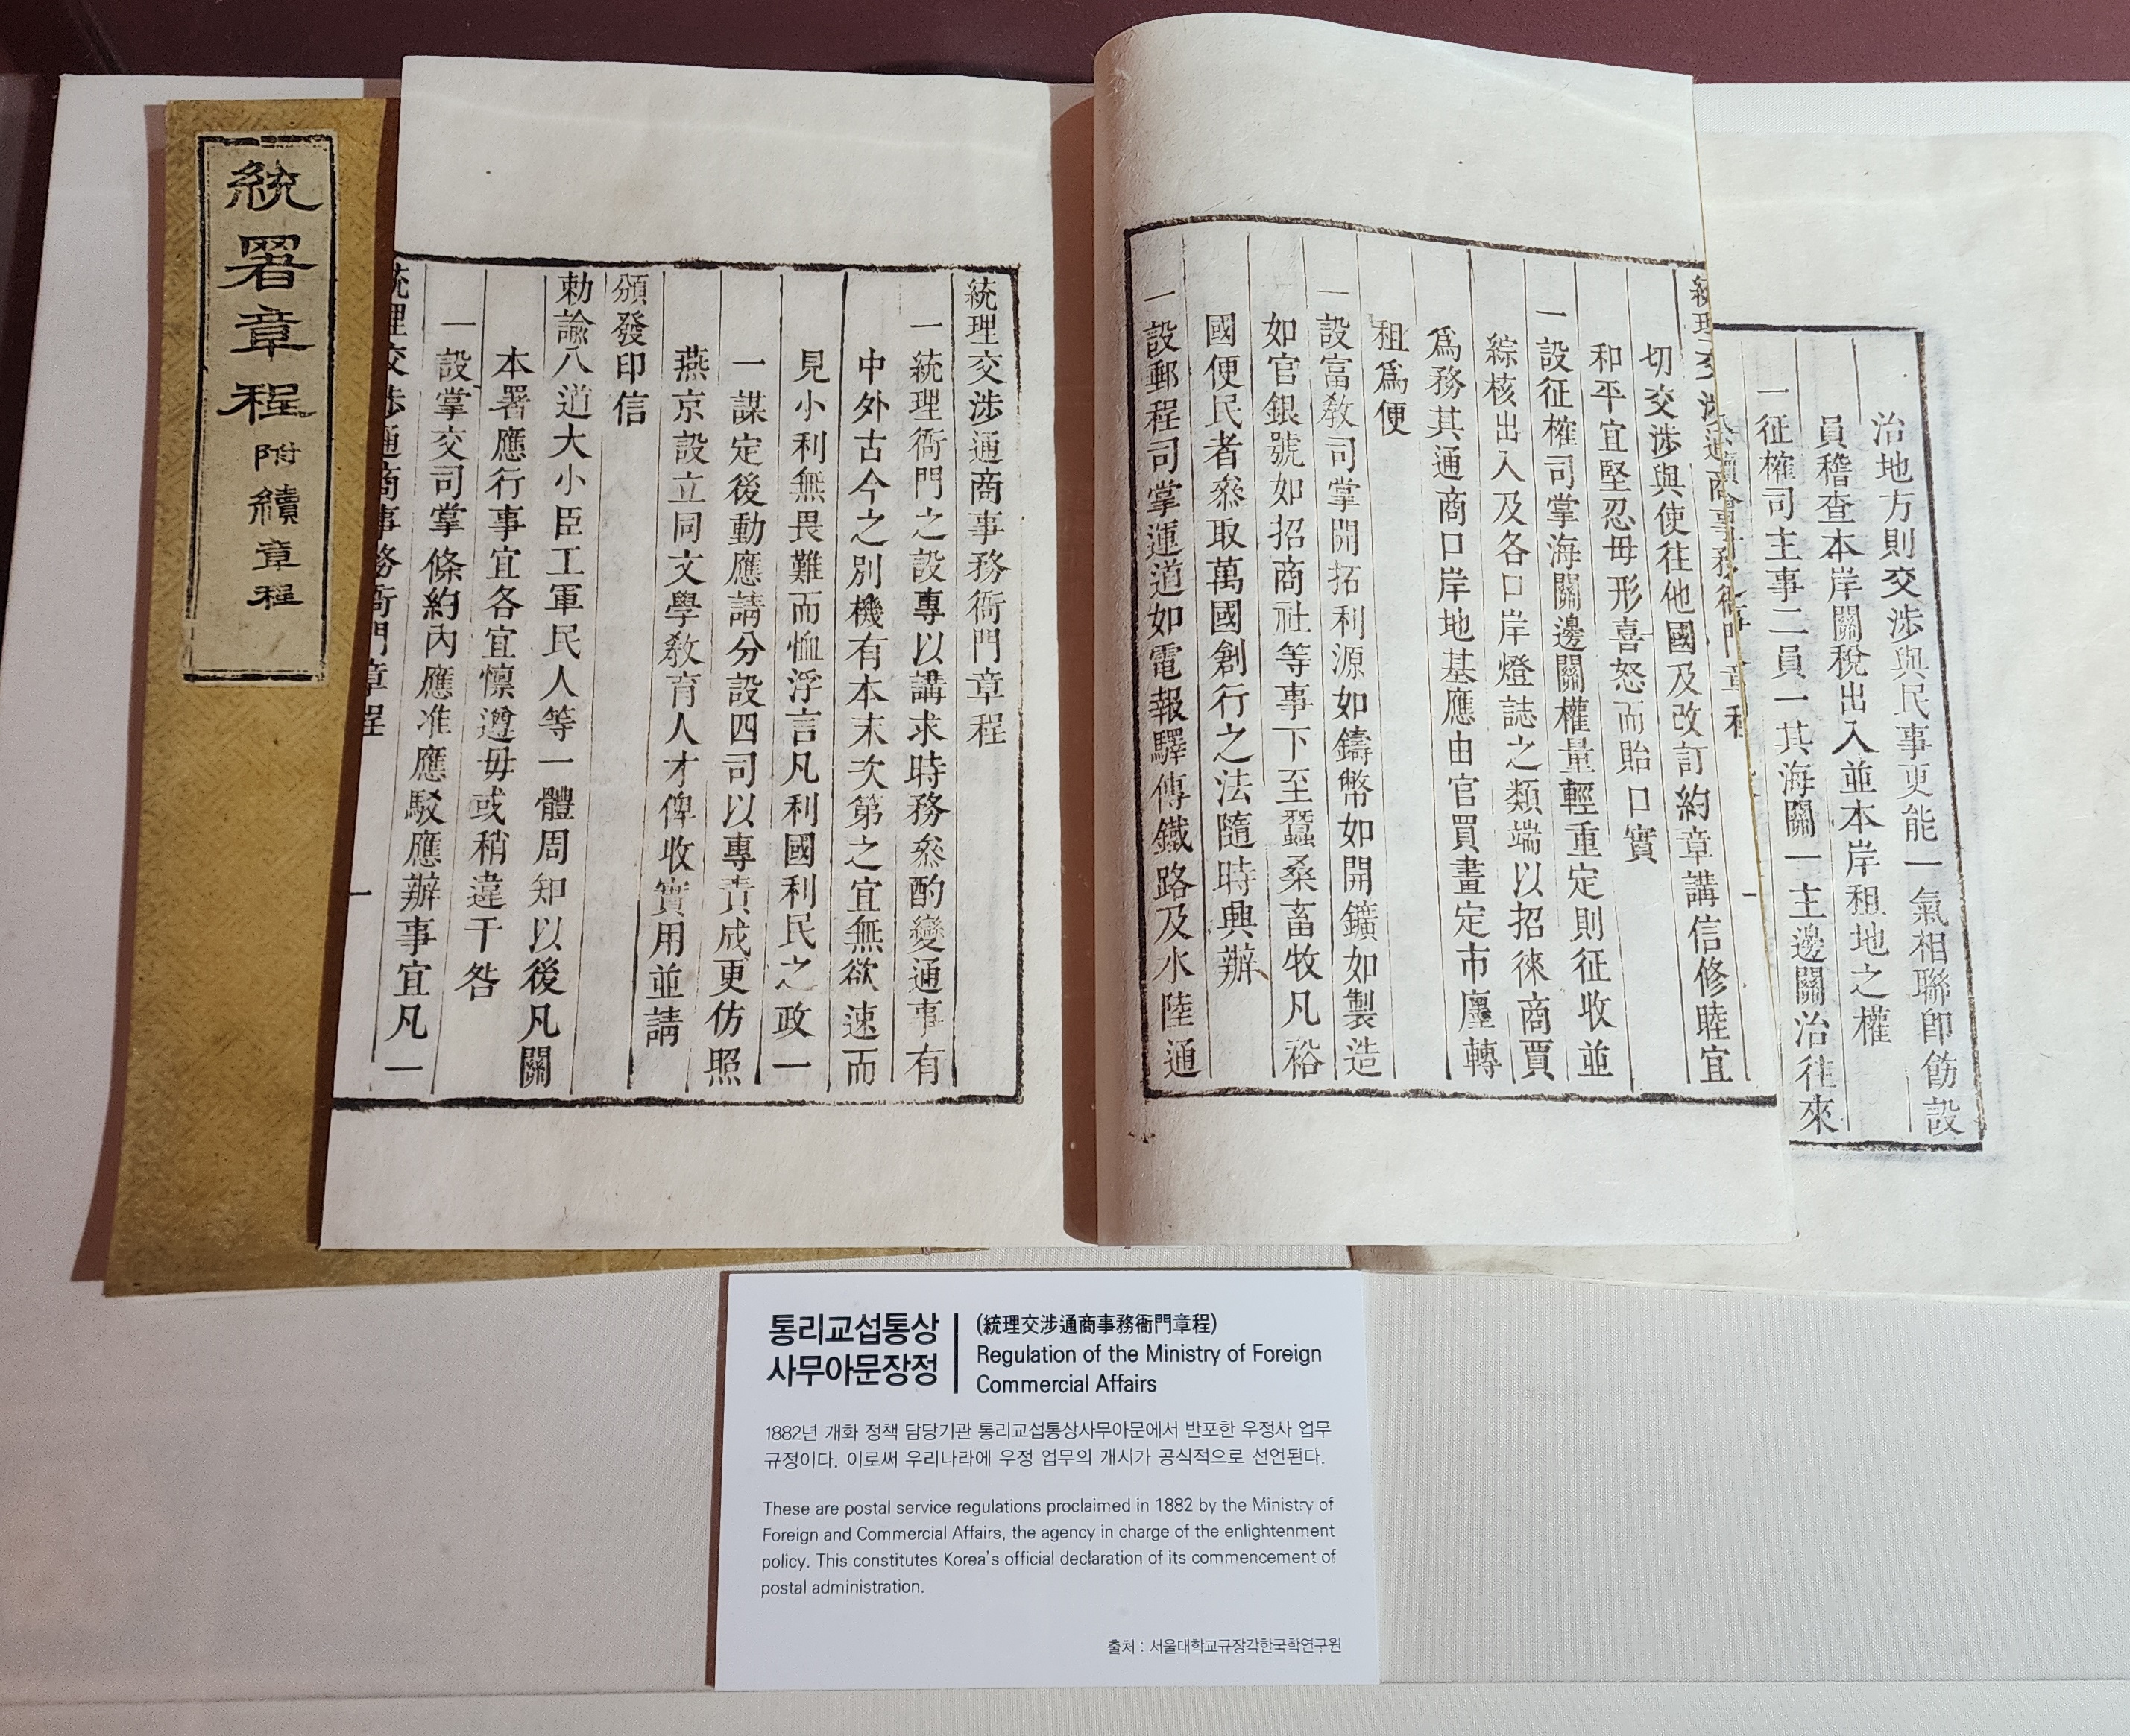 統署章程
附續章程
統理交涉通商事務衙門章程
一統理衙門之設專以講求時務叅酌變通事有
中外古今之別機有本末次第之宜無欲速而
見小利無畏難而恤浮言凡利國利民之政一
一謀定後動應請分設四司以專責成更仿照
燕京設立同文學敎育人才俾收實用並請
頒發印信
勅諭八道大小臣工軍民人等一體周知以後凡關
本署應行事宜各宜懍遵毋或稍違干咎
一設掌交司掌條約內應准應駁應辦事宜凡一
統理交涉通商事務衙門章程
一
切交涉與使往他國及改訂約章講信修睦宜
和平宜堅忍毋形喜怒而貽口實
一設征榷司掌海關邊關權量輕重定則征收並
綜核出入及各口岸燈誌之類端以招徠商賈
爲務其通商口岸地基應由官買畫定市廛轉
租爲便
一設富敎司掌開拓利源如鑄幣如開鑛如製造
如官銀號如招商社等事下至蠶桑畜牧凡裕
國便民者叅取萬國創行之法隨時興辦
一設郵程司掌運道如電報驛傳鐵路及水陸通
治地方則交涉與民事更能一氣相聯卽飭設
員稽查本岸關稅出入並本岸租地之權
一征榷司主事二員一其海關一主邊關治往來
통리교섭통상
사무아문장정
(統理交涉通商事務衙門章程)
Regulation of the Ministry of Foreign
Commercial Affairs
1882년 개화 정책 담당기관 통리교섭통상사무아문에서 반포한 우정사 업무
규정이다. 이로써 우리나라에 우정 업무의 개시가 공식적으로 선언된다.
These are postal service regulations proclaimed in 1882 by the Ministry of
Foreign and Commercial Affairs, the agency in charge of the enlightenment
policy. This constitutes Korea's official declaration of its commencement of
postal administration.
출처 : 서울대학교규장각한국학연구원